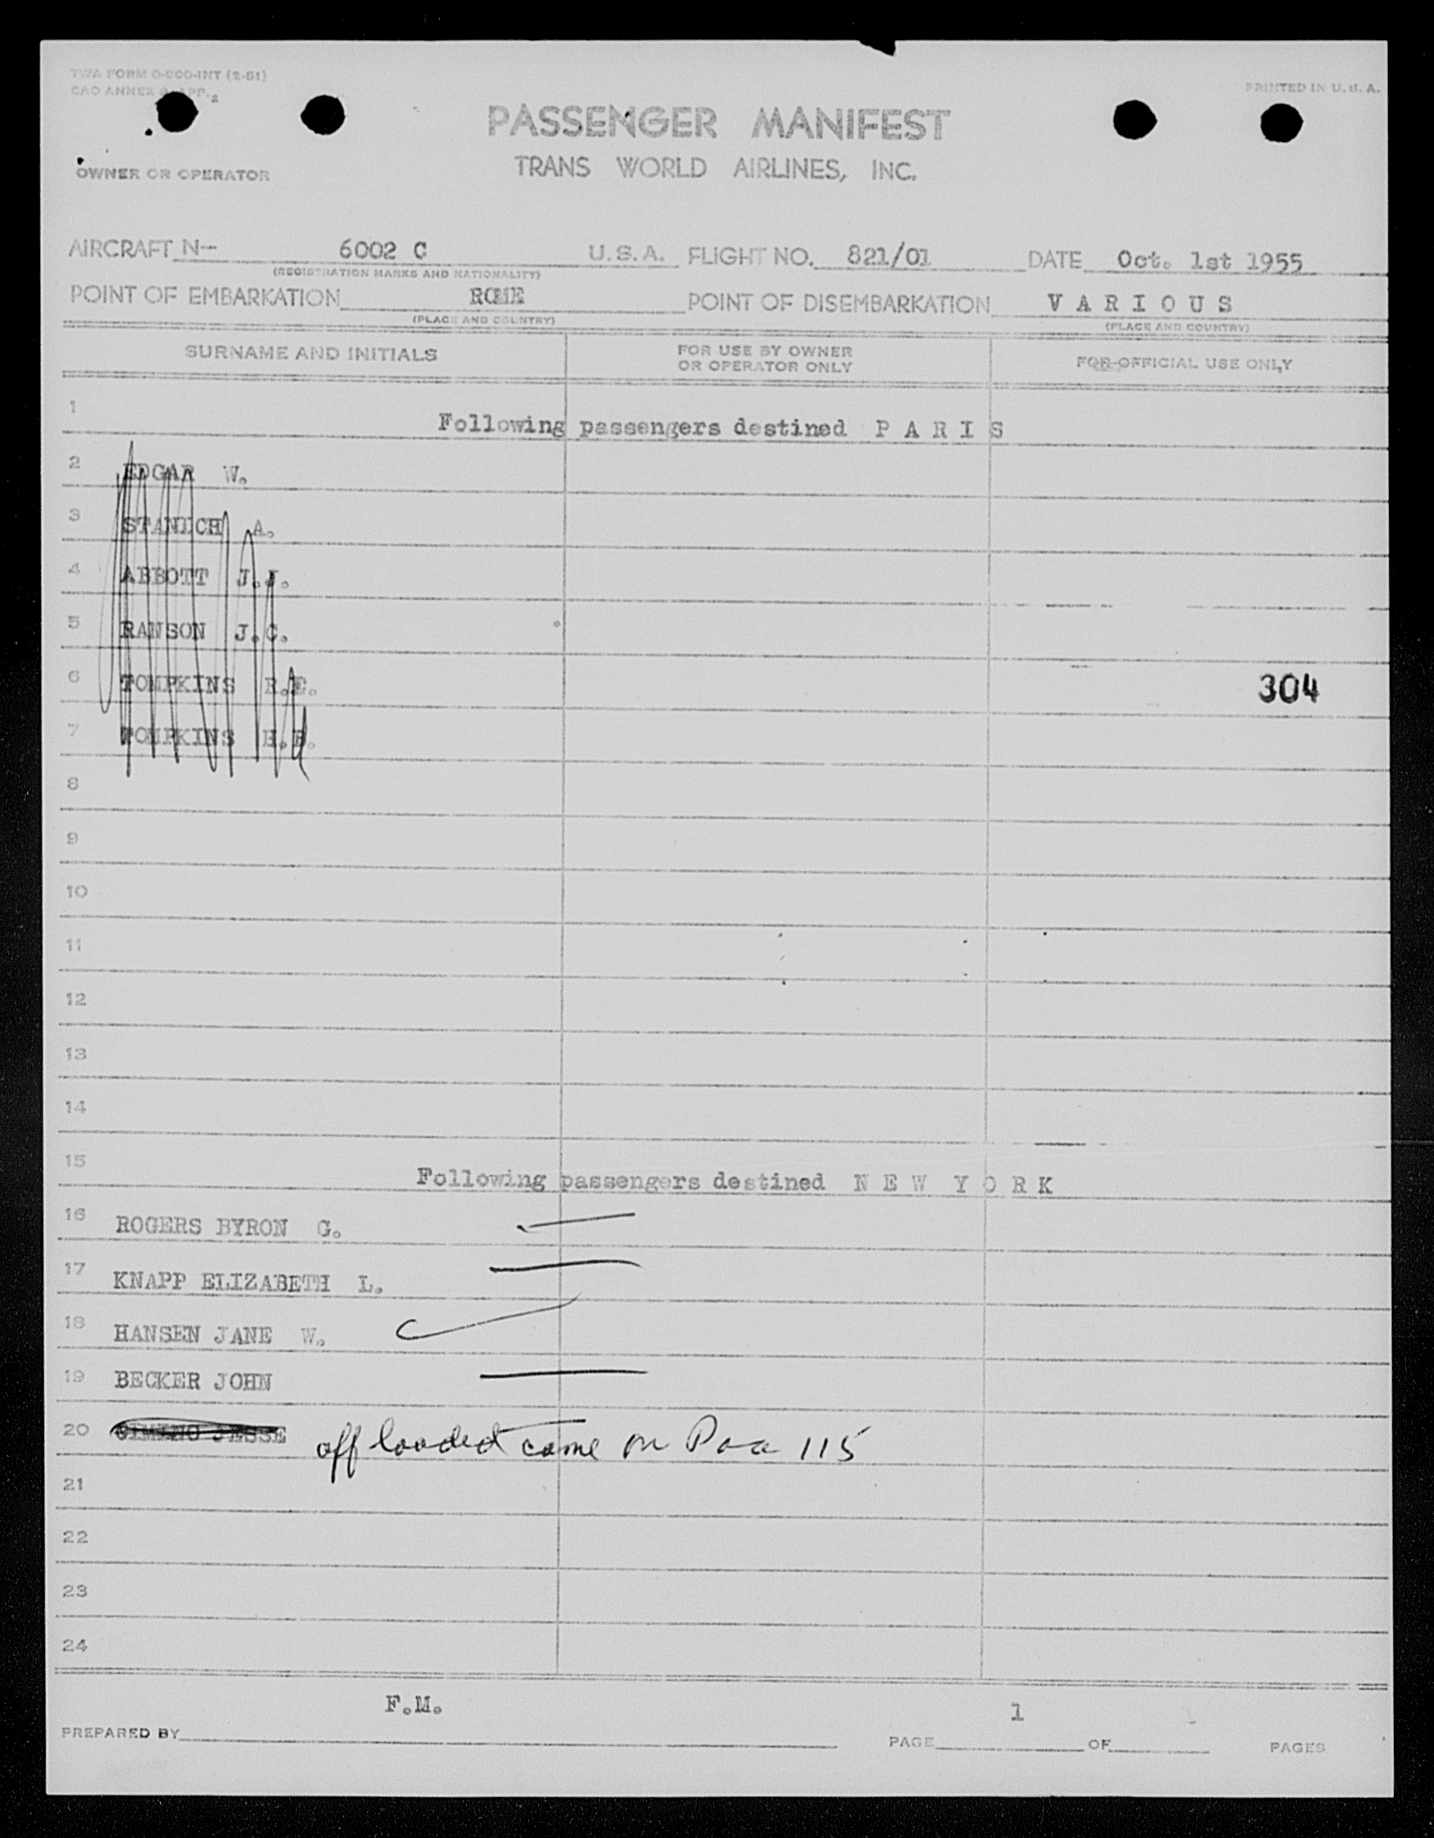 TWA FORM O-800-INT (2-51)
CAO ANNEX 9, APP. 2
PRINTED IN U.S.A.
PASSENGER MANIFEST
TRANS WORLD AIRLINES, INC.
OWNER OR OPERATOR
AIRCRAFT N-- 6002 C U.S.A. FLIGHT NO. 821/01 DATE Oct. 1st 1955
(REGISTRATION MARKS AND NATIONALITY)
POINT OF EMBARKATION ROME POINT OF DISEMBARKATION V A R I O U S
(PLACE AND COUNTRY) (PLACE AND COUNTRY)
SURNAME AND INITIALS FOR USE BY OWNER OR OPERATOR ONLY FOR OFFICIAL USE ONLY
1 Following passengers destined P A R I S
2 EDGAR W.
3 STANICH A.
4 ABBOTT J.J.
5 RANSON J.C.
6 TOMPKINS R.E. 304
7 TOMPKINS H.
8
9
10
11
12
13
14
15 Following passengers destined N E W Y O R K
16 ROGERS BYRON G.
17 KNAPP ELIZABETH L.
18 HANSEN JANE W.
19 BECKER JOHN
20 JESSE off loaded came on Paa 115
21
22
23
24
F.M. 1
PREPARED BY PAGE OF PAGES